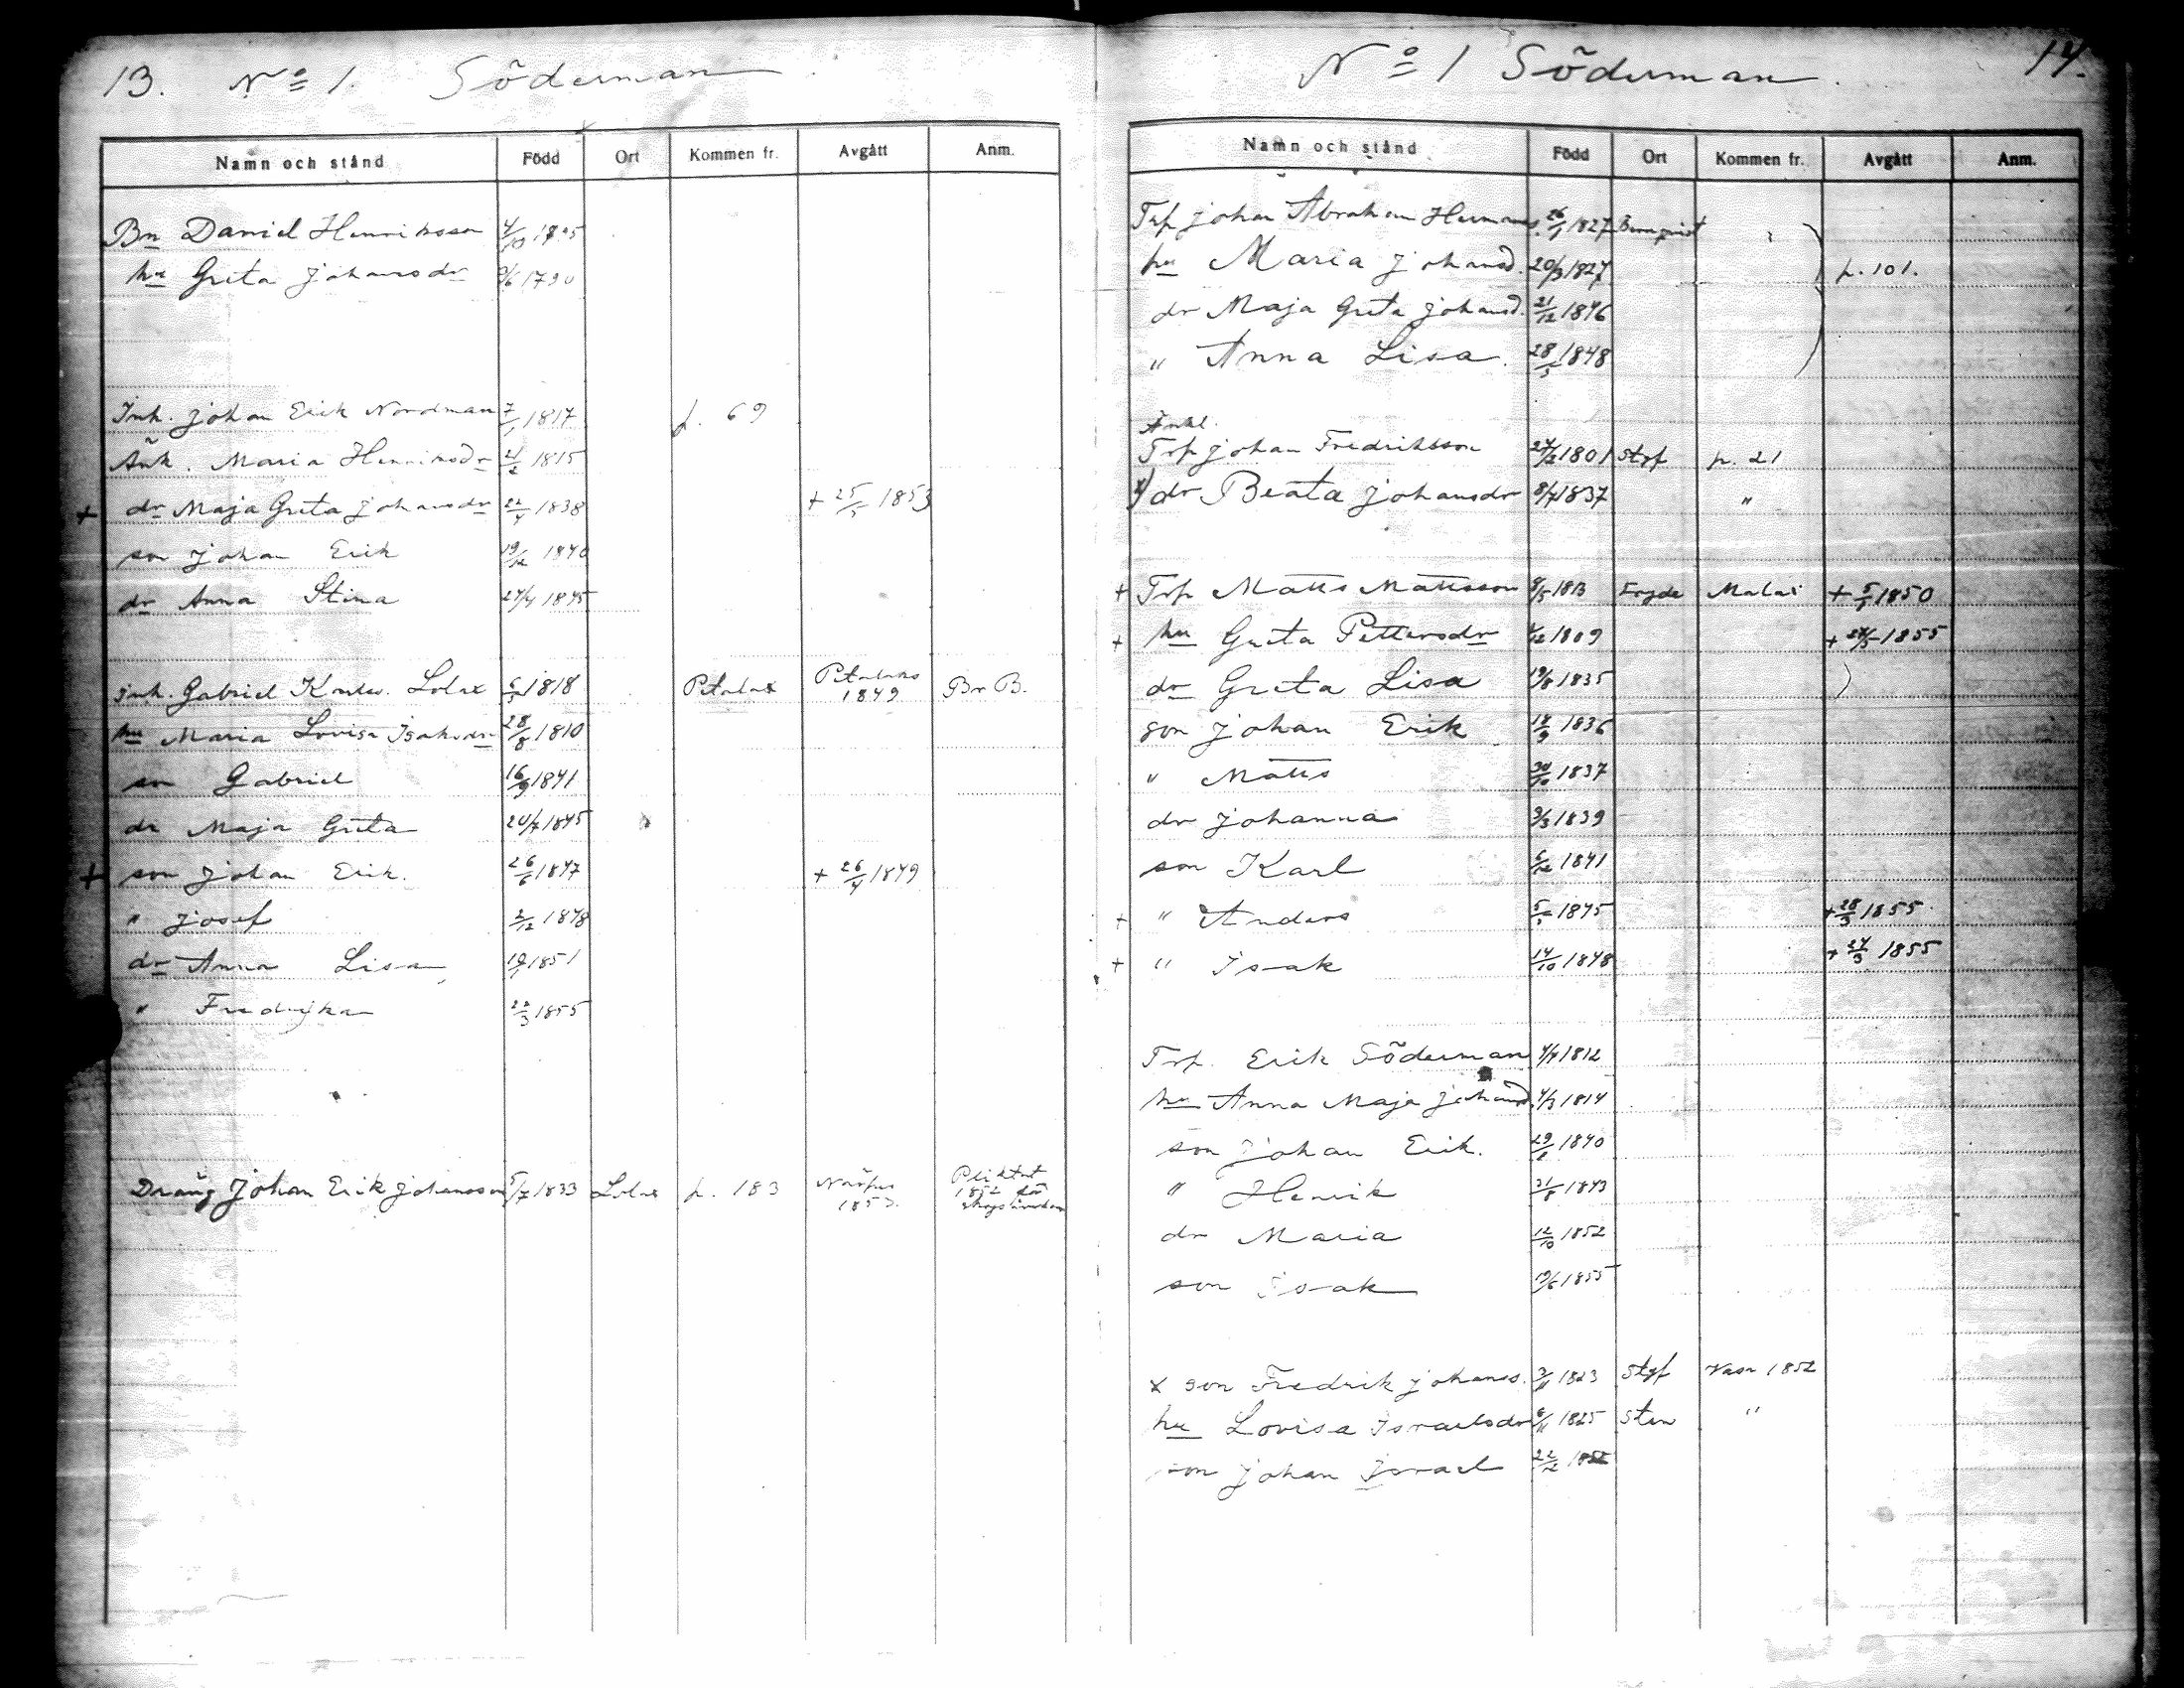 13. No 1. Söderman
Namn och stånd Född Ort Kommen fr. Avgått Anm.
Bn Daniel Henriksson 4/10
hu Greta Johansdr 1790
Inh. Johan Erik Nordman 7/1 1817 p. 69
Änk. Maria Henriksdr 1815
+ dr Maja Greta Johansdr 22/4 1838 + 25/5 1853
son Johan Erik 19/12 1840
dr Anna Stina 24/4 1845
Inh. Gabriel Karlss. Lolax 1818 Petalax Petalaks 1849 Br B.
hu Maria Lovisa Isaksdr 28/8 1810
son Gabriel 16/9 1841
dr Maja Greta 20/7 1845
+ son Johan Erik. 26/6 1847 + 26/4 1849
" Josef 2/12 1848
dr Anna Lisa 1851
" Fredrika 22/3 1855
Dräng Johan Erik Johansson 5/7 1833 Lolax p. 183 Närpes 1853. Pliktat 1852 för
No 1 Söderman. 14.
Namn och stånd Född Ort Kommen fr. Avgått Anm.
Trp Johan Abraham Hermans. 26/1 1827
hu Maria Johansd. 20/3 1827 p. 101.
dr Maja Greta Johansd. 21/12 1846
" Anna Lisa. 28/5 1848
Änkl.
Trp Johan Fredriksson 24/2 1801 Stgf p. 21
x) dr Beata Johansdr 8/4 1837 "
+ Trp Matts Mattsson 9/5 1813 Malax + 1850
+ hu Greta Pettersdr 1809 + 24/3 1855
dr Greta Lisa 19/8 1835
son Johan Erik 1836
" Matts 30/10 1837
dr Johanna 3/3 1839
son Karl 5/12 1841
+ " Anders 1845 + 28/3 1855
+ " Isak 14/10 1848 + 27/3 1855
Trp. Erik Söderman 4/4 1812
hu Anna Maja Johansd. 4/3 1814
son Johan Erik. 1840
" Henrik 31/8 1843
dr Maria 12/10 1852
son Isak 19/6 1855
x son Fredrik Johanss. 1823 Stgf Vasa 1852
hu Lovisa Israelsdr 6/11 1825 "
son Johan Israel 22/2